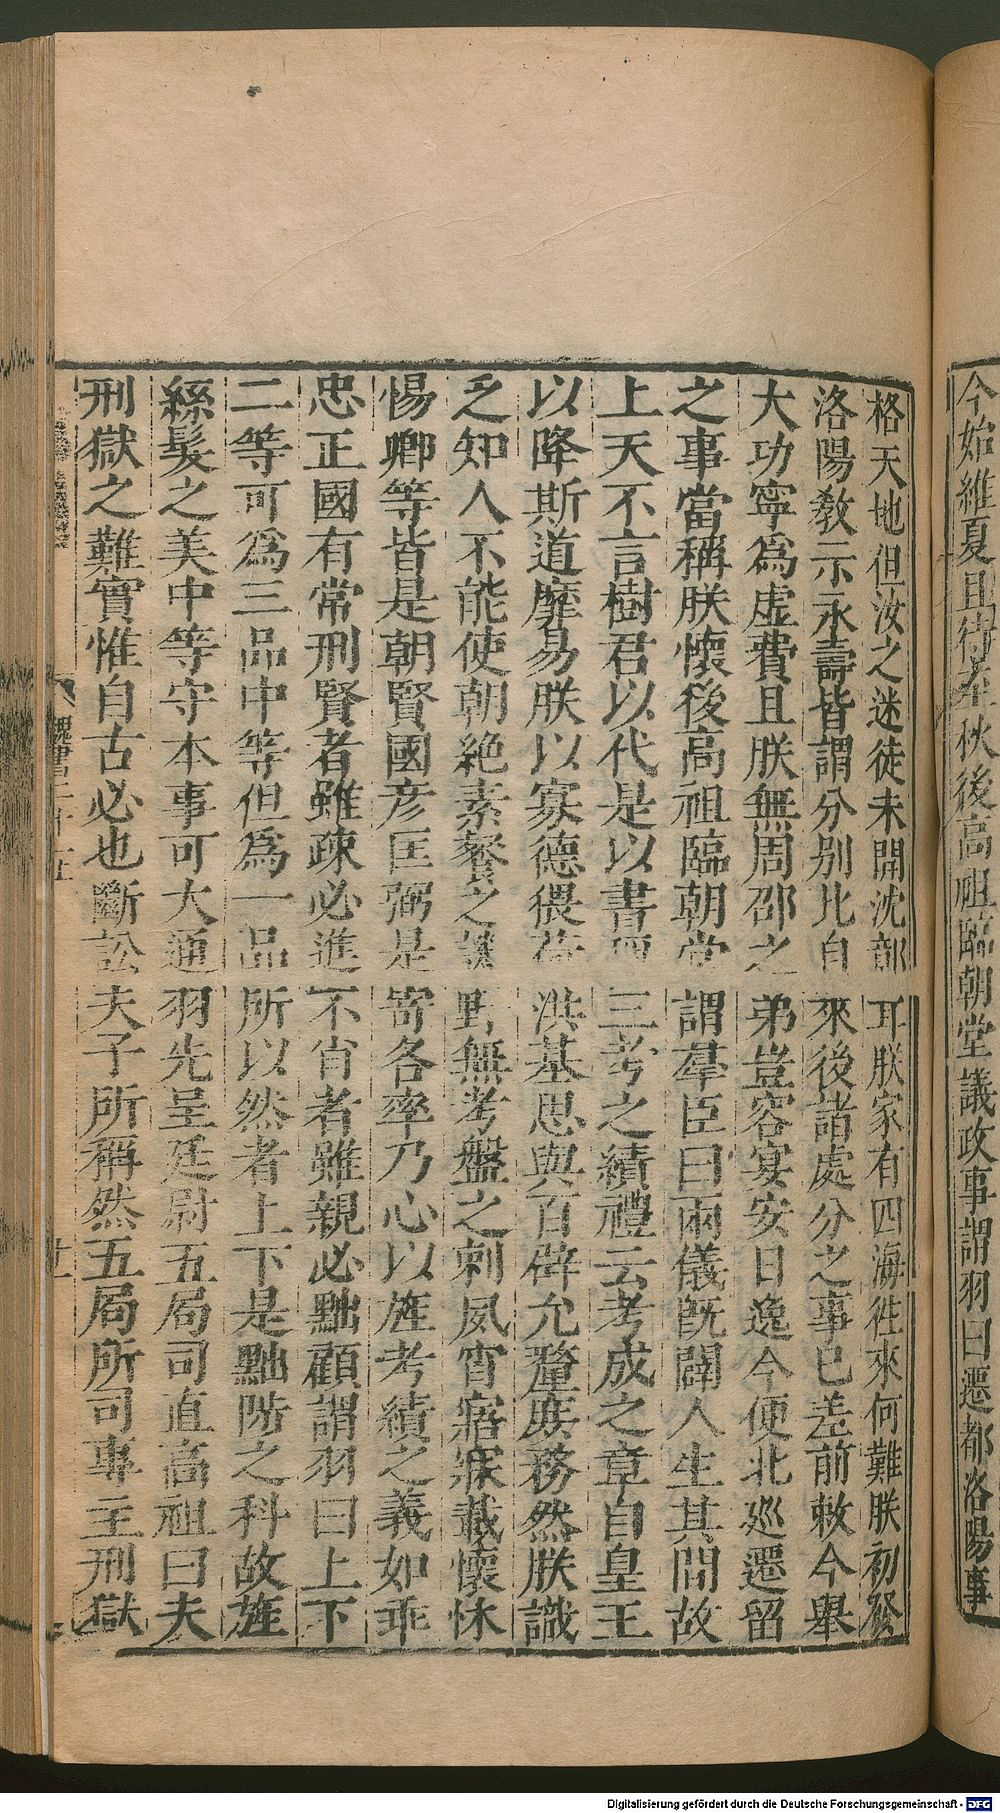 今始維夏且待至秋後高祖臨朝堂議政事謂羽曰遷都洛陽事
格天地但汝之迷徒未開沈鄙耳朕家有四海徃來何難朕初發
洛陽敎示永壽皆謂分别比自來後諸處分之事已差前敕今舉
大功寧爲虛費且朕無周邵之弟豈容宴安日逸今便北巡遷留
之事當稱朕懷後高祖臨朝堂謂羣臣曰兩儀旣闢人生其間故
上天不言樹君以代是以書稱三考之績禮云考成之章自皇王
以降斯道靡易朕以寡德猥荷洪基思與百辟允釐庶務然朕識
乏知人不能使朝絶素餐之譏野無考盤之刺夙宵寤寐載懷怵
惕卿等皆是朝賢國彦匡弼是寄各率乃心以旌考績之義如乖
忠正國有常刑賢者雖疎必進不肖者雖親必黜顧謂羽曰上下
二等可爲三品中等但爲一品所以然者上下是黜陟之科故旌
絲髮之美中等守本事可大通羽先呈廷尉五局司直高祖曰夫
刑獄之難實惟自古必也斷訟夫子所稱然五局所司專主刑獄
魏書二十一上
廿一
Digitalisierung gefördert durch die Deutsche Forschungsgemeinschaft - DFG